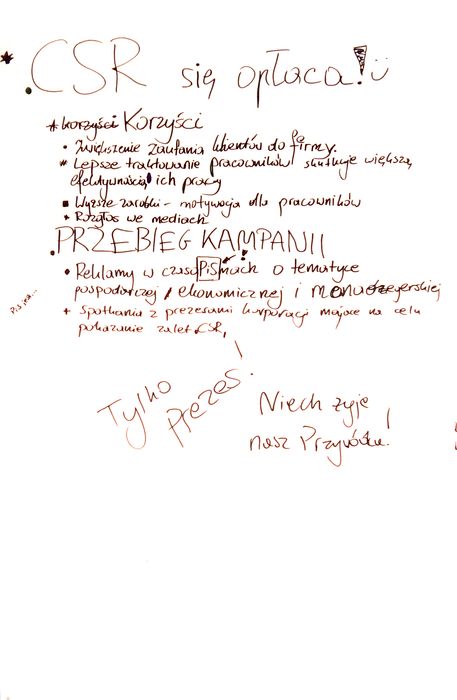 * .CSR się opłaca! :)
* korzyści Korzyści
• Zwiększenie zaufania klientów do firmy.
* Lepsze traktowanie pracowników skutkuje większą
efektywnością ich pracy
▪ Wyższe zarobki - motywacja dla pracowników
* Rozgłos we mediach
.PRZEBIEG KAMPANII
• Reklamy w czasoPiSmach o tematyce
gospodarczej, ekonomicznej i menadżerskiej
+ Spotkania z prezesami korporacji mające na celu
pokazanie zalet CSR,
Tylko
prezes!
Niech żyje
nasz Przywódca!